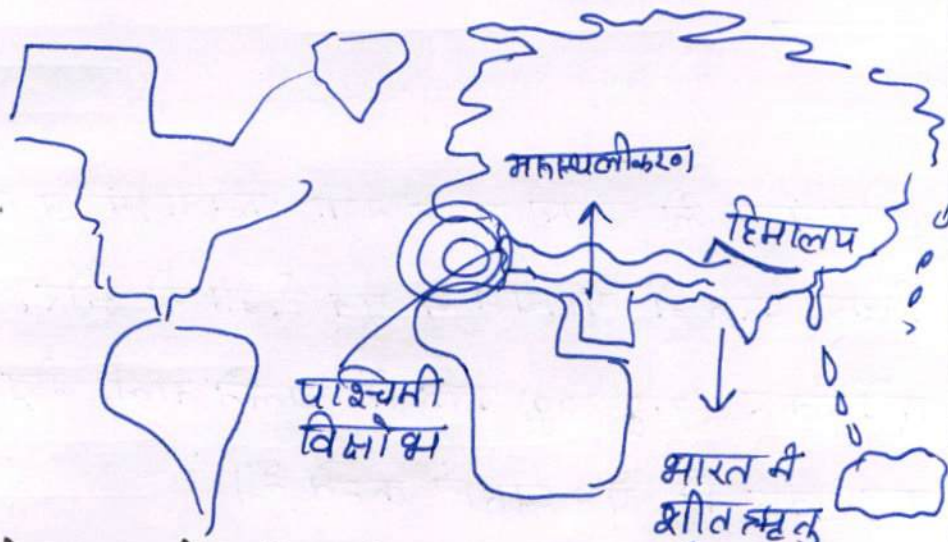 मरुस्थलीकरण
हिमालय
पश्चिमी
विक्षोभ
भारत में
शीत ऋतु